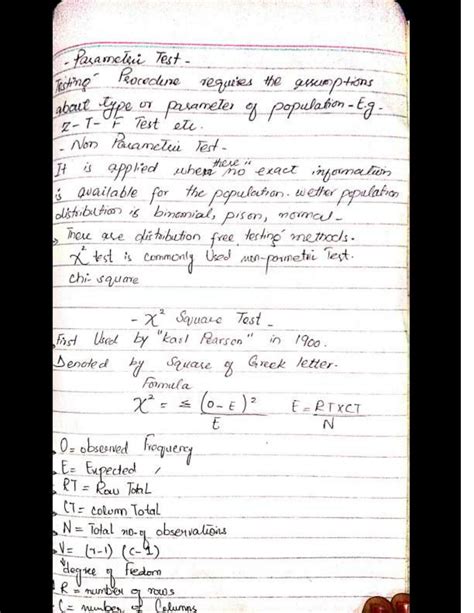 - Parametric Test -
Testing Procedure requires the assumptions
about type or parameter of population - E.g.
Z - T - F Test etc.
- Non Parametric Test -
It is applied when there is no exact information
is available for the population. wetther population
distribution is binomial, pison, normal -
There are distribution free testing methods.
χ² test is commonly Used non-parmetric Test.
chi-square
- χ² Square Test -
First Used by "Karl Pearson" in 1900.
Denoted by Square of Greek letter.
Formula
χ² = ≤ (O-E)²/E E = RTXCT/N
O = observed Frequency
E = Expected ,
RT = Row Total
CT = column Total
N = Total no. of observations
V = (r-1) (c-1)
degree of Fredom
R = number of rows
C = number of Columns